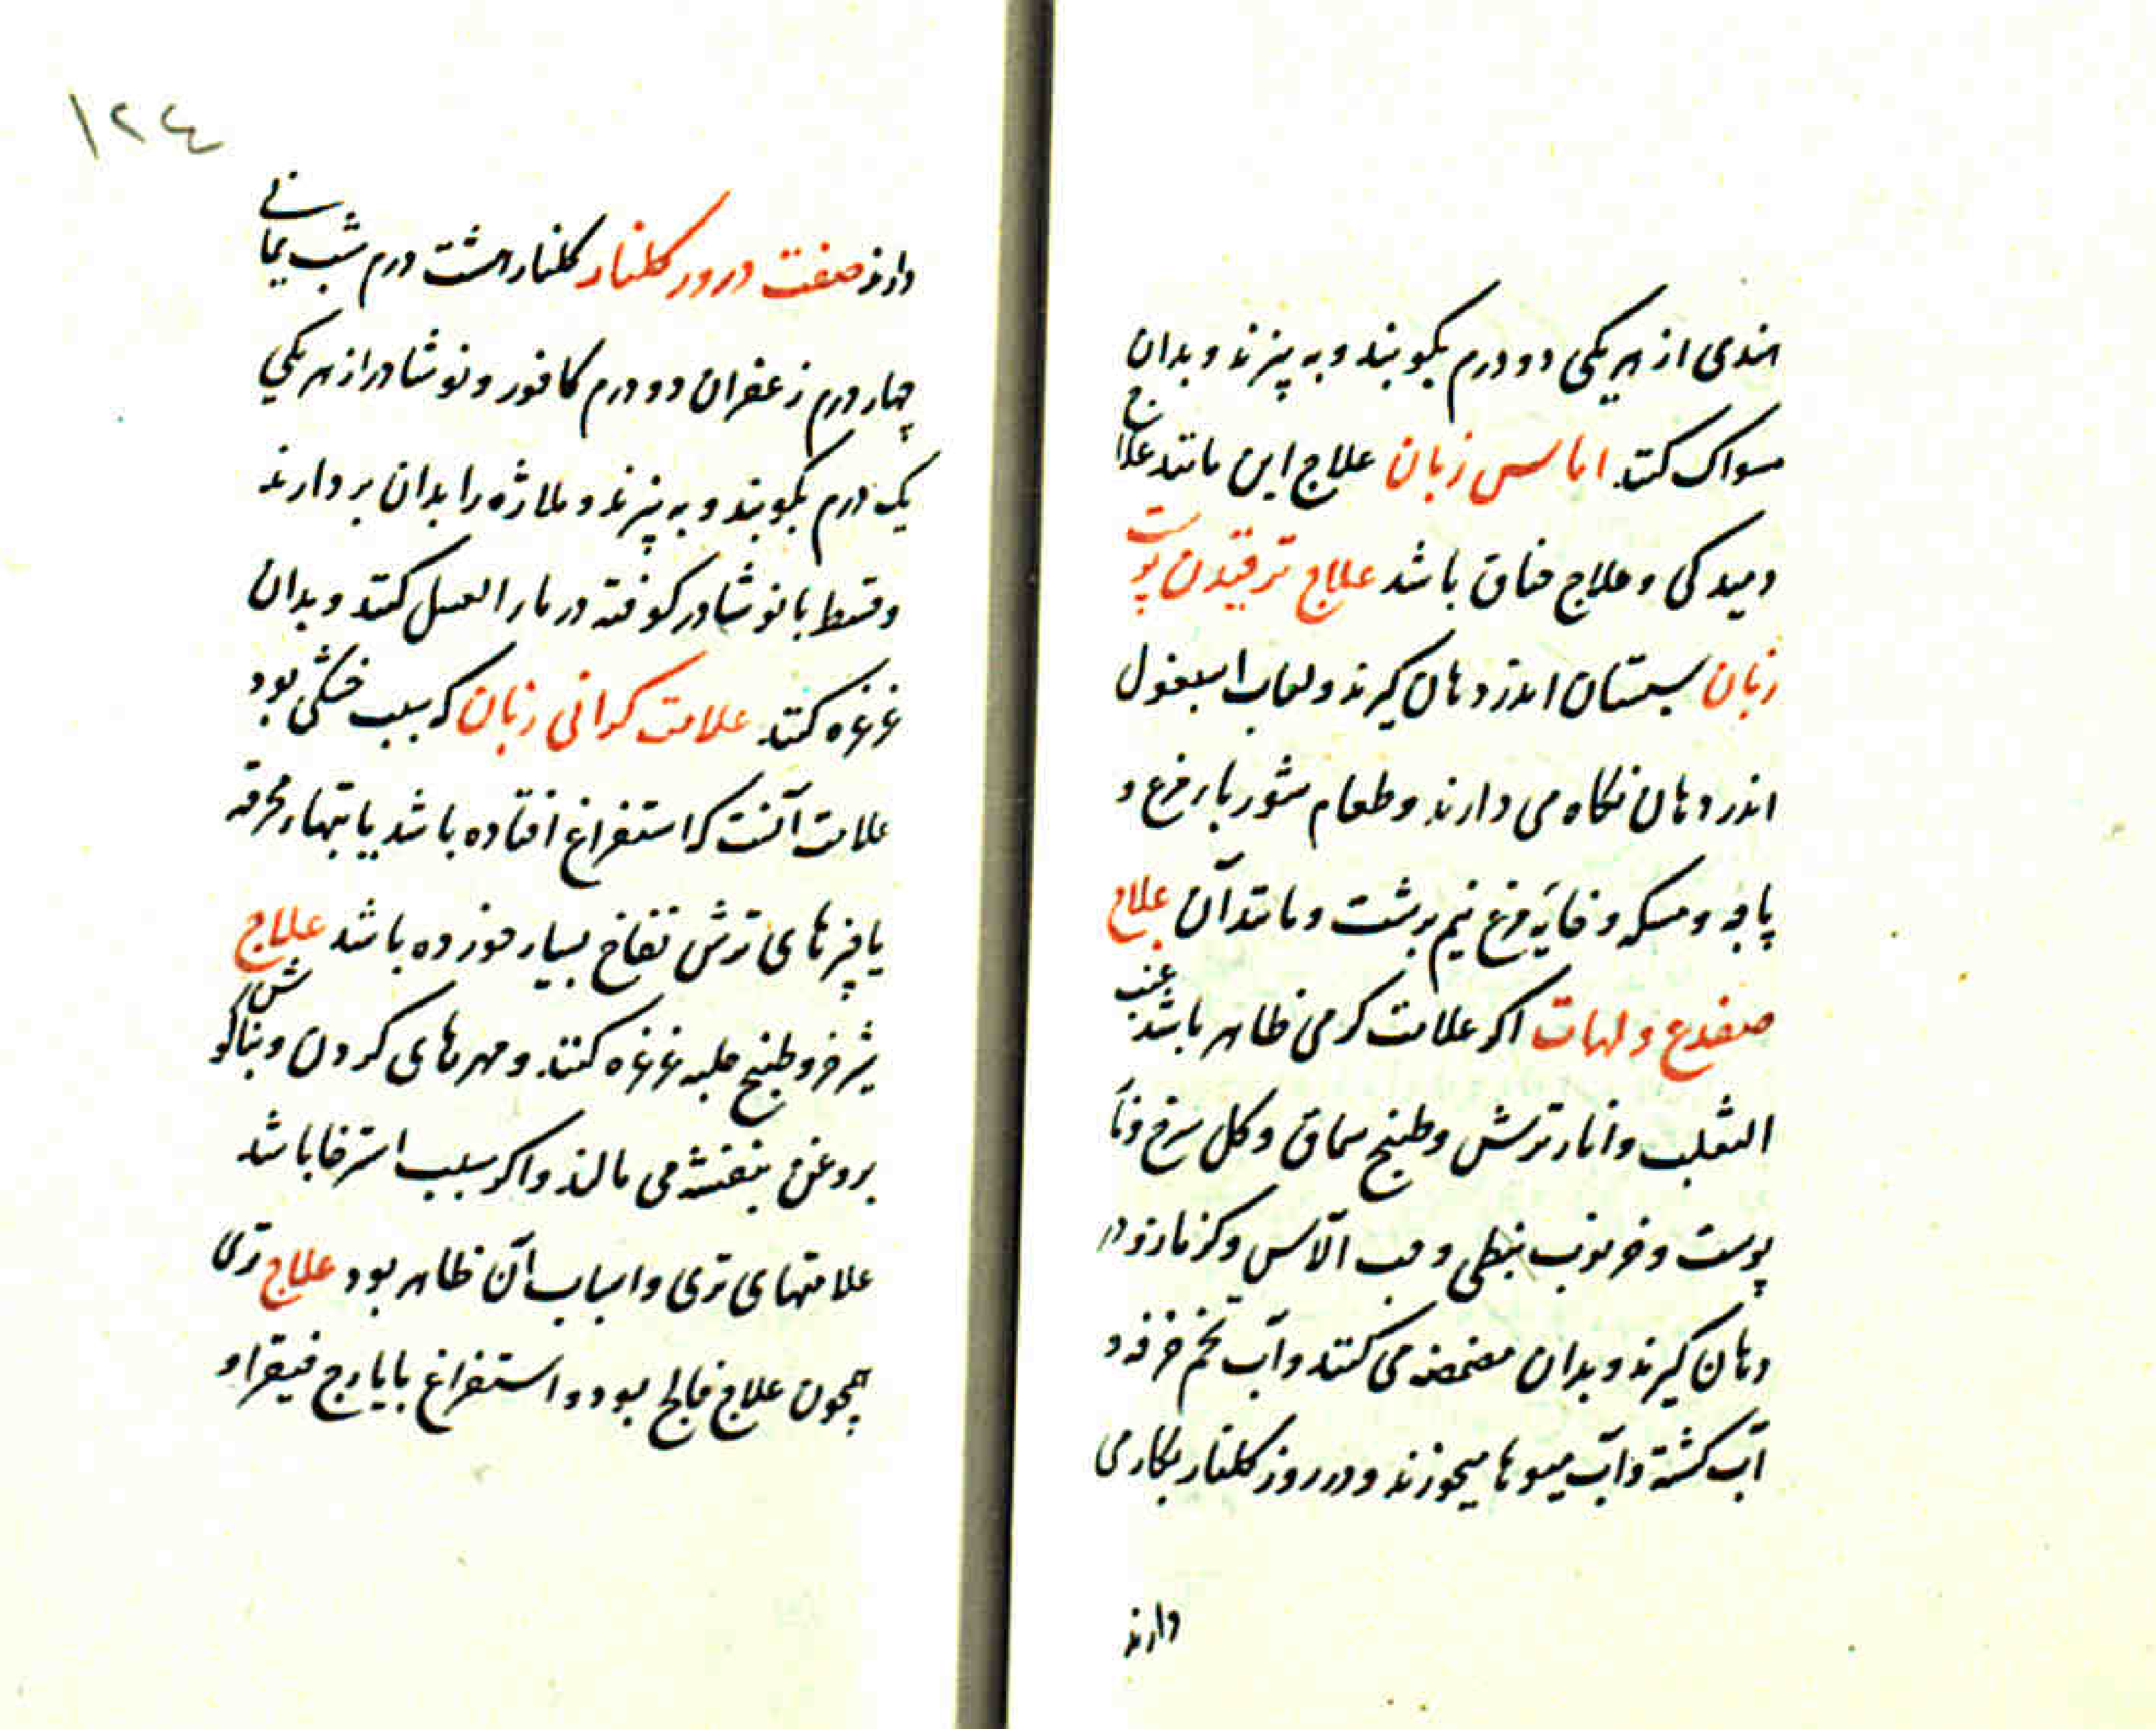 هندی از هر یکی دو درم بکوبند و به پزند و بدان
مسواک کنند اماس زبان علاج این مانند علاج
دمیدکی و علاج خناق باشد علاج ترقیدن پوست
زبان سپستان اندر دهان کیرند و لعاب اسبغول
اندر دهان نکاه می دارند و طعام شوربا، مرغ و
پاچه و مسکه و خایه مرغ نیم برشت و مانند آن علاج
ضفدع و لهات اکر علامت کرمی ظاهر باشد عنب
الثعلب و انار ترش و طبیخ سماق و کل سرخ و نا
پوست و خرنوب نبطی و حب الآس و کزمازو در
دهان کیرند و بدان مضمضه می کنند و آب تخم خرفه و
آب کشنه و آب میوها میخورند و درروز کلنار بکار می
دارند
۱۲٤
دارند صفت درور کلنار کلنار هشت درم شب یمانے
چهار درم زعفران دو درم کافور و نوشادر از هر یکی
یک درم بکوبند و به پزند و ملاژه را بدان بردارند
و قسط با نوشادر کوفته در ماء العسل کنند و بدان
غرغره کنند علامت کرانی زبان که بسبب خشکی بود
علامت آنست که استفراغ افتاده باشد یا تبهاء محرقه
یا چیزهای ترش نفاخ بسیار خورده باشد علاج
شیر خر و طبیخ حلبه غرغره کنند و مهرهای کردن و بناکوش
بروغن بنفشه می مالند و اکر بسبب استرخا باشد
علامتهای تری و اسباب آن ظاهر بود علاج تری
همچون علاج فالج بود و استفراغ بایارج فیقرا و